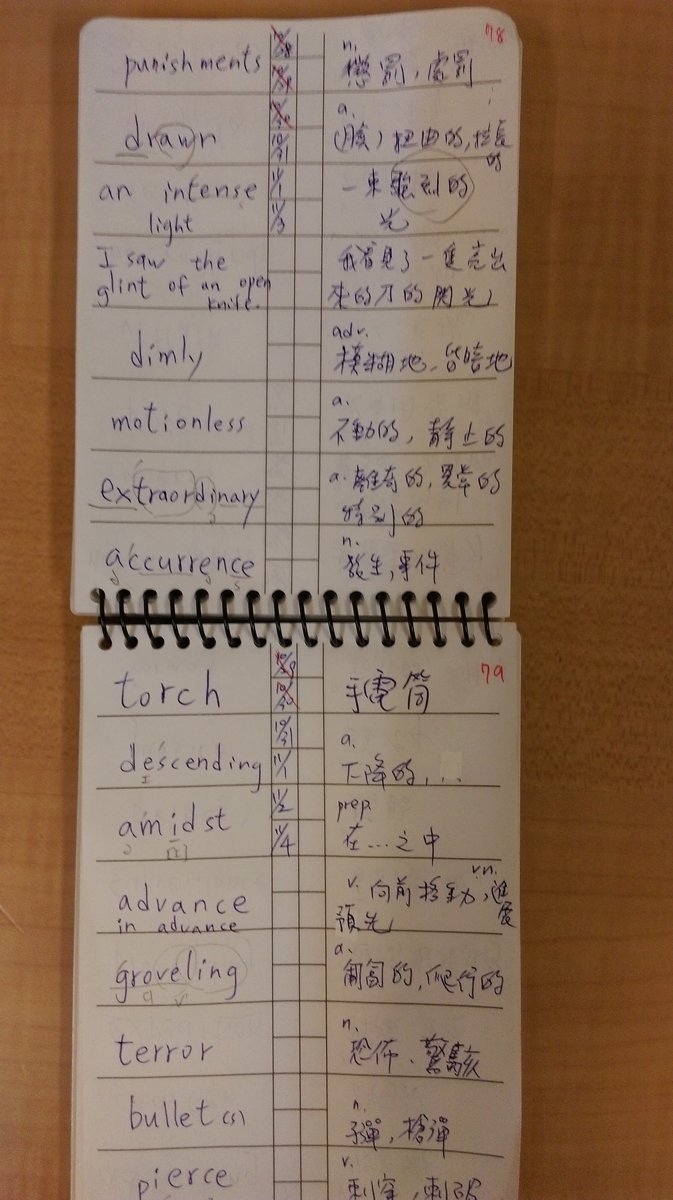 78
punishments
n.
懲罰，處罰
drawn
a.
(臉)扭曲的，拉長的
an intense
light
一束強烈的
光
I saw the
glint of an open
knife.
我看見了一隻亮出
來的刀的閃光
dimly
adv.
模糊地、昏暗地
motionless
a.
不動的，靜止的
extraordinary
a. 離奇的，異常的
特別的
accurrence
n.
發生，事件
10/31
11/1
11/3
79
torch
手電筒
descending
a.
下降的，...
amidst
prep.
在...之中
advance
in advance
v. 向前移動，vn. 進展
預先
groveling
a.
匍匐的，爬行的
terror
n.
恐怖、驚駭
bullet(s)
n.
子彈，槍彈
pierce
v.
刺穿，刺破
10/31
11/1
11/2
11/4